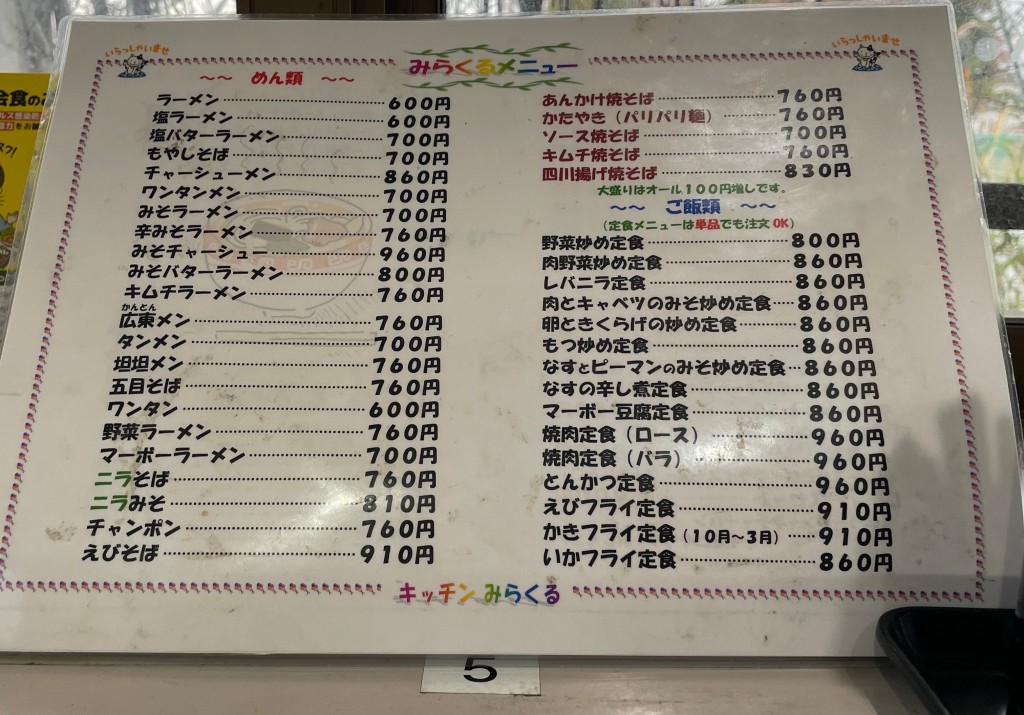 いらっしゃいませ
みらくるメニュー
いらっしゃいませ
～～ めん類 ～～
ラーメン 600円
塩ラーメン 600円
塩バターラーメン 700円
もやしそば 700円
チャーシューメン 860円
ワンタンメン 700円
みそラーメン 700円
辛みそラーメン 760円
みそチャーシュー 960円
みそバターラーメン 800円
キムチラーメン 760円
かんとん
広東メン 760円
タンメン 700円
坦坦メン 760円
五目そば 760円
ワンタン 600円
野菜ラーメン 760円
マーボーラーメン 700円
ニラそば 760円
ニラみそ 810円
チャンポン 760円
えびそば 910円
あんかけ焼そば 760円
かたやき（パリパリ麺） 760円
ソース焼そば 700円
キムチ焼そば 760円
四川揚げ焼そば 830円
大盛りはオール１００円増しです。
～～ ご飯類 ～～
（定食メニューは単品でも注文OK）
野菜炒め定食 800円
肉野菜炒め定食 860円
レバニラ定食 860円
肉とキャベツのみそ炒め定食 860円
卵ときくらげの炒め定食 860円
もつ炒め定食 860円
なすとピーマンのみそ炒め定食 860円
なすの辛し煮定食 860円
マーボー豆腐定食 860円
焼肉定食（ロース） 960円
焼肉定食（バラ） 960円
とんかつ定食 960円
えびフライ定食 910円
かきフライ定食（10月～3月） 910円
いかフライ定食 860円
キッチン みらくる
5